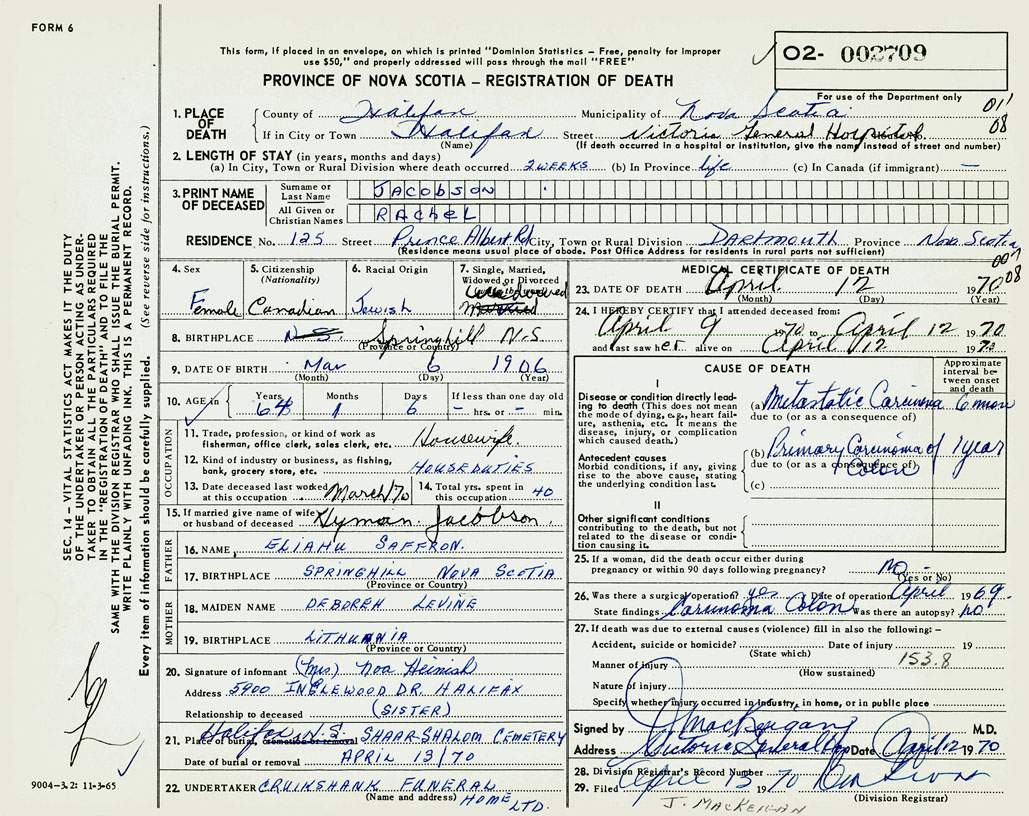 FORM 6
This form, if placed in an envelope, on which is printed "Dominion Statistics – Free, penalty for improper
use $50," and properly addressed will pass through the mail "FREE"
PROVINCE OF NOVA SCOTIA – REGISTRATION OF DEATH
02- 002709
For use of the Department only
011
08
1. PLACE OF DEATH
County of Halifax Municipality of Nova Scotia
If in City or Town Halifax Street Victoria General Hospital
(Name) (If death occurred in a hospital or institution, give the name instead of street and number)
2. LENGTH OF STAY (in years, months and days)
(a) In City, Town or Rural Division where death occurred 2 WEEKS (b) In Province life (c) In Canada (if immigrant) —
3. PRINT NAME OF DECEASED
Surname or Last Name JACOBSON
All Given or Christian Names RACHEL
RESIDENCE No. 125 Street Prince Albert Rd City, Town or Rural Division DARTMOUTH Province Nova Scotia
(Residence means usual place of abode. Post Office Address for residents in rural parts not sufficient)
007
08
4. Sex
Female
5. Citizenship
(Nationality)
Canadian
6. Racial Origin
Jewish
7. Single, Married,
Widowed or Divorced
Widowed
Married
8. BIRTHPLACE N.S. Springhill N.S.
(Province or Country)
9. DATE OF BIRTH Mar 6 1906
(Month) (Day) (Year)
10. AGE in
Years Months Days If less than one day old
64 1 6 – hrs. or – min.
OCCUPATION
11. Trade, profession, or kind of work as
fisherman, office clerk, sales clerk, etc. Housewife.
12. Kind of industry or business, as fishing,
bank, grocery store, etc. HOUSEDUTIES
13. Date deceased last worked
at this occupation March 70
14. Total yrs. spent in
this occupation 40
15. If married give name of wife
or husband of deceased Hyman Jacobson.
FATHER
16. NAME, ELIAHU SAFFRON.
17. BIRTHPLACE SPRINGHILL NOVA SCOTIA
(Province or Country)
MOTHER
18. MAIDEN NAME DEBOREH LEVINE
19. BIRTHPLACE LITHUANIA
(Province or Country)
20. Signature of informant (Mrs) Noa Heinish
Address 5900 INGLEWOOD DR. HALIFAX
Relationship to deceased (SISTER)
Halifax N.S.
21. Place of burial, cremation or removal SHAAR SHALOM CEMETERY
Date of burial or removal APRIL 13/70
22. UNDERTAKER CRUIKSHANK FUNERAL
(Name and address) HOME LTD.
MEDICAL CERTIFICATE OF DEATH
23. DATE OF DEATH April 12 1970
(Month) (Day) (Year)
24. I HEREBY CERTIFY that I attended deceased from:
April 9 1970 to April 12 1970
and last saw her alive on April 12 1970
CAUSE OF DEATH
Approximate
interval be-
tween onset
and death
I
Disease or condition directly lead-
ing to death (This does not mean
the mode of dying, e.g., heart fail-
ure, asthenia, etc. It means the
disease, injury, or complication
which caused death.)
(a) Metastatic Carcinoma 6 mon
due to (or as a consequence of)
Antecedent causes
Morbid conditions, if any, giving
rise to the above cause, stating
the underlying condition last.
(b) Primary Carcinoma of 1 year
due to (or as a consequence of)
Colon
(c)
II
Other significant conditions
contributing to the death, but not
related to the disease or condi-
tion causing it.
25. If a woman, did the death occur either during
pregnancy or within 90 days following pregnancy? no
(Yes or No)
26. Was there a surgical operation? yes Date of operation April 1969.
State findings Carcinoma Colon Was there an autopsy? no
27. If death was due to external causes (violence) fill in also the following: –
Accident, suicide or homicide? Date of injury 19
(State which)
153.8
Manner of injury
(How sustained)
Nature of injury
Specify whether injury occurred in Industry, in home, or in public place
Signed by J MacKeigan M.D.
Address Victoria General Hosp Date April 12 1970
28. Division Registrar's Record Number
29. Filed April 13 1970
(Division Registrar)
J. MacKEIGAN
SEC. 14 – VITAL STATISTICS ACT MAKES IT THE DUTY
OF THE UNDERTAKER OR PERSON ACTING AS UNDER-
TAKER TO OBTAIN ALL THE PARTICULARS REQUIRED
IN THE "REGISTRATION OF DEATH" AND TO FILE THE
SAME WITH THE DIVISION REGISTRAR WHO SHALL ISSUE THE BURIAL PERMIT.
WRITE PLAINLY WITH UNFADING INK. THIS IS A PERMANENT RECORD.
Every item of information should be carefully supplied. (See reverse side for instructions.)
9004-3.2: 11-3-65